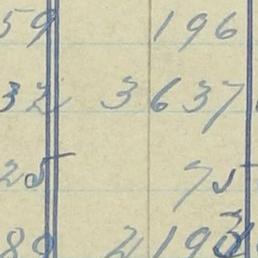 59 196
32 3637
25 75
89